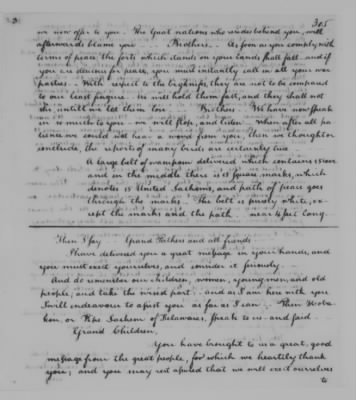 305
we now offer to you. The Great nations who reside behind you, will
afterwards blame you — Brothers. — As soon as you comply with
terms of peace, the forts which stands on your lands shall fall. and if
you are desirous for peace, you must instantly call in all your war
parties. — With respect to the they are not to be compared
to our least fingers. We will hold them fast, and they shall not
stir, untill we let them loose — Brothers — We have now spoken
in so much to you — we will stop, and listen. When after all pa
tience we could not hear a word from you, then we thought or
construe, the reports of many birds are certainly true. —
A large belt of wampum delivered which contains 15 rows
and in the middle there is 15 square marks, which
denotes 15 United Sachems, and path of peace goes
through the marks. — The belt is mostly white, ex
cept the marks and the path — near 4 feet long.
Then I say — Grand Fathers and all friends
I have delivered you a great message in your hands, and
you must exert yourselves, and consider it seriously. —
And do remember our children, women, young men, and old
people, and take the wisest part. and as I am here with you
I will endeavour to assist you as far as I can. — Then
kon or Pipe Sachem of Delawares, spoke to us — and said —
Grand Children,
You have brought to us a great, good
message from the great people, for which we heartily thank
you; and you may rest assured that we will exert ourselves
to